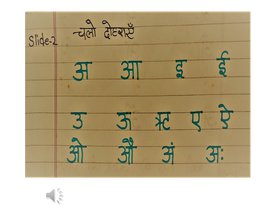 Slide-2 चलो दोहराएँ
अ आ इ ई
उ ऊ ऋ ए ऐ
ओ औ अं अः